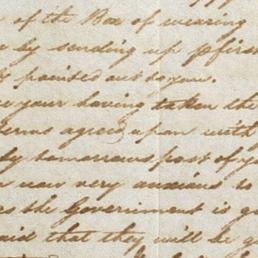 of the Box of wearing
by sending up pfirst
pointed out to you.
your having taken the
terms agreed upon with
by tomorrows post of y
was very anxious to
the Government is g
said that they will be g